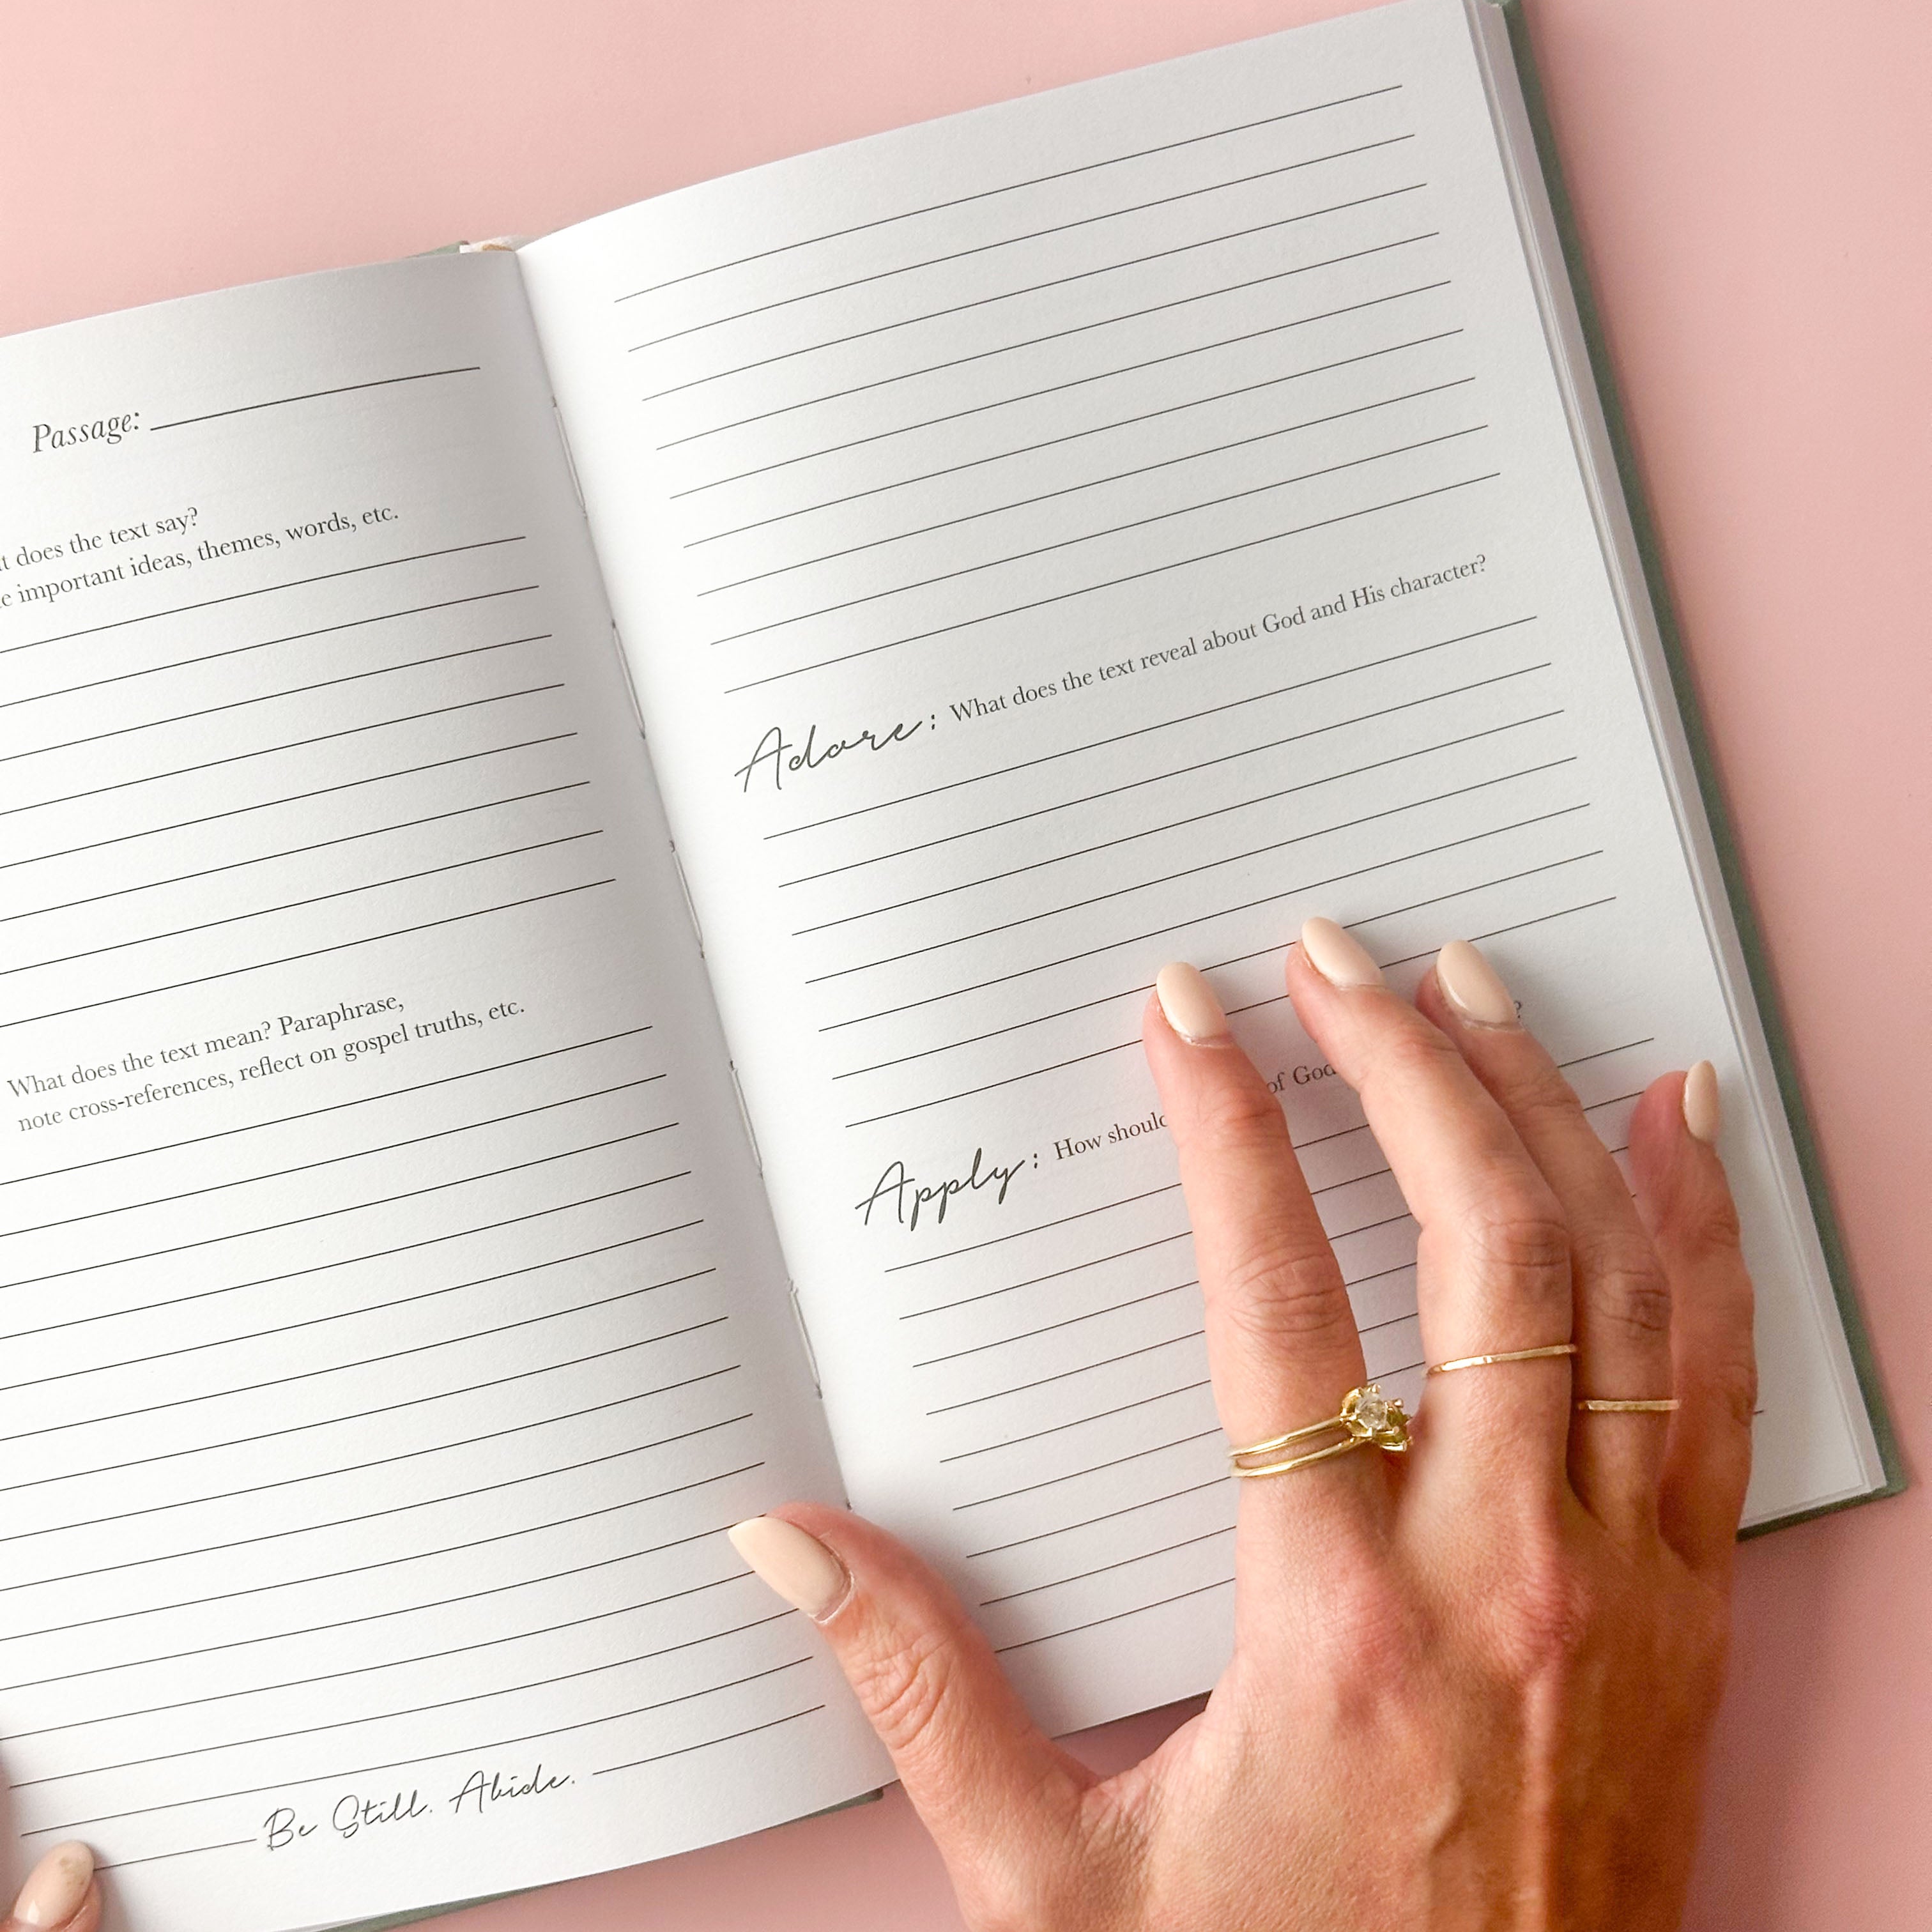 Passage:
does the text say?
important ideas, themes, words, etc.
What does the text mean? Paraphrase,
note cross-references, reflect on gospel truths, etc.
Be Still. Abide.
Adore: What does the text reveal about God and His character?
Apply: How should of God ?